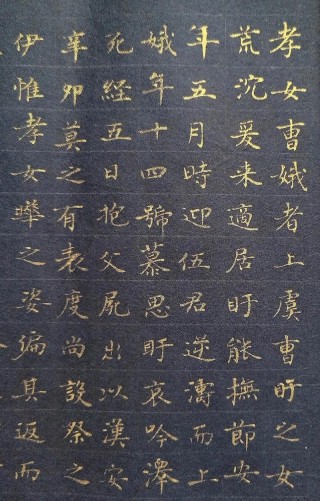 孝女曺娥者上虞曺盱之女
荒沈爰来適居盱能撫節安
年五月時迎伍君逆濤而上
娥年十四號慕思盱哀吟澤
死経五日抱父屍出以漢安
辛卯莫之有表度尚設祭之
伊惟孝女曄之姿偏其返而